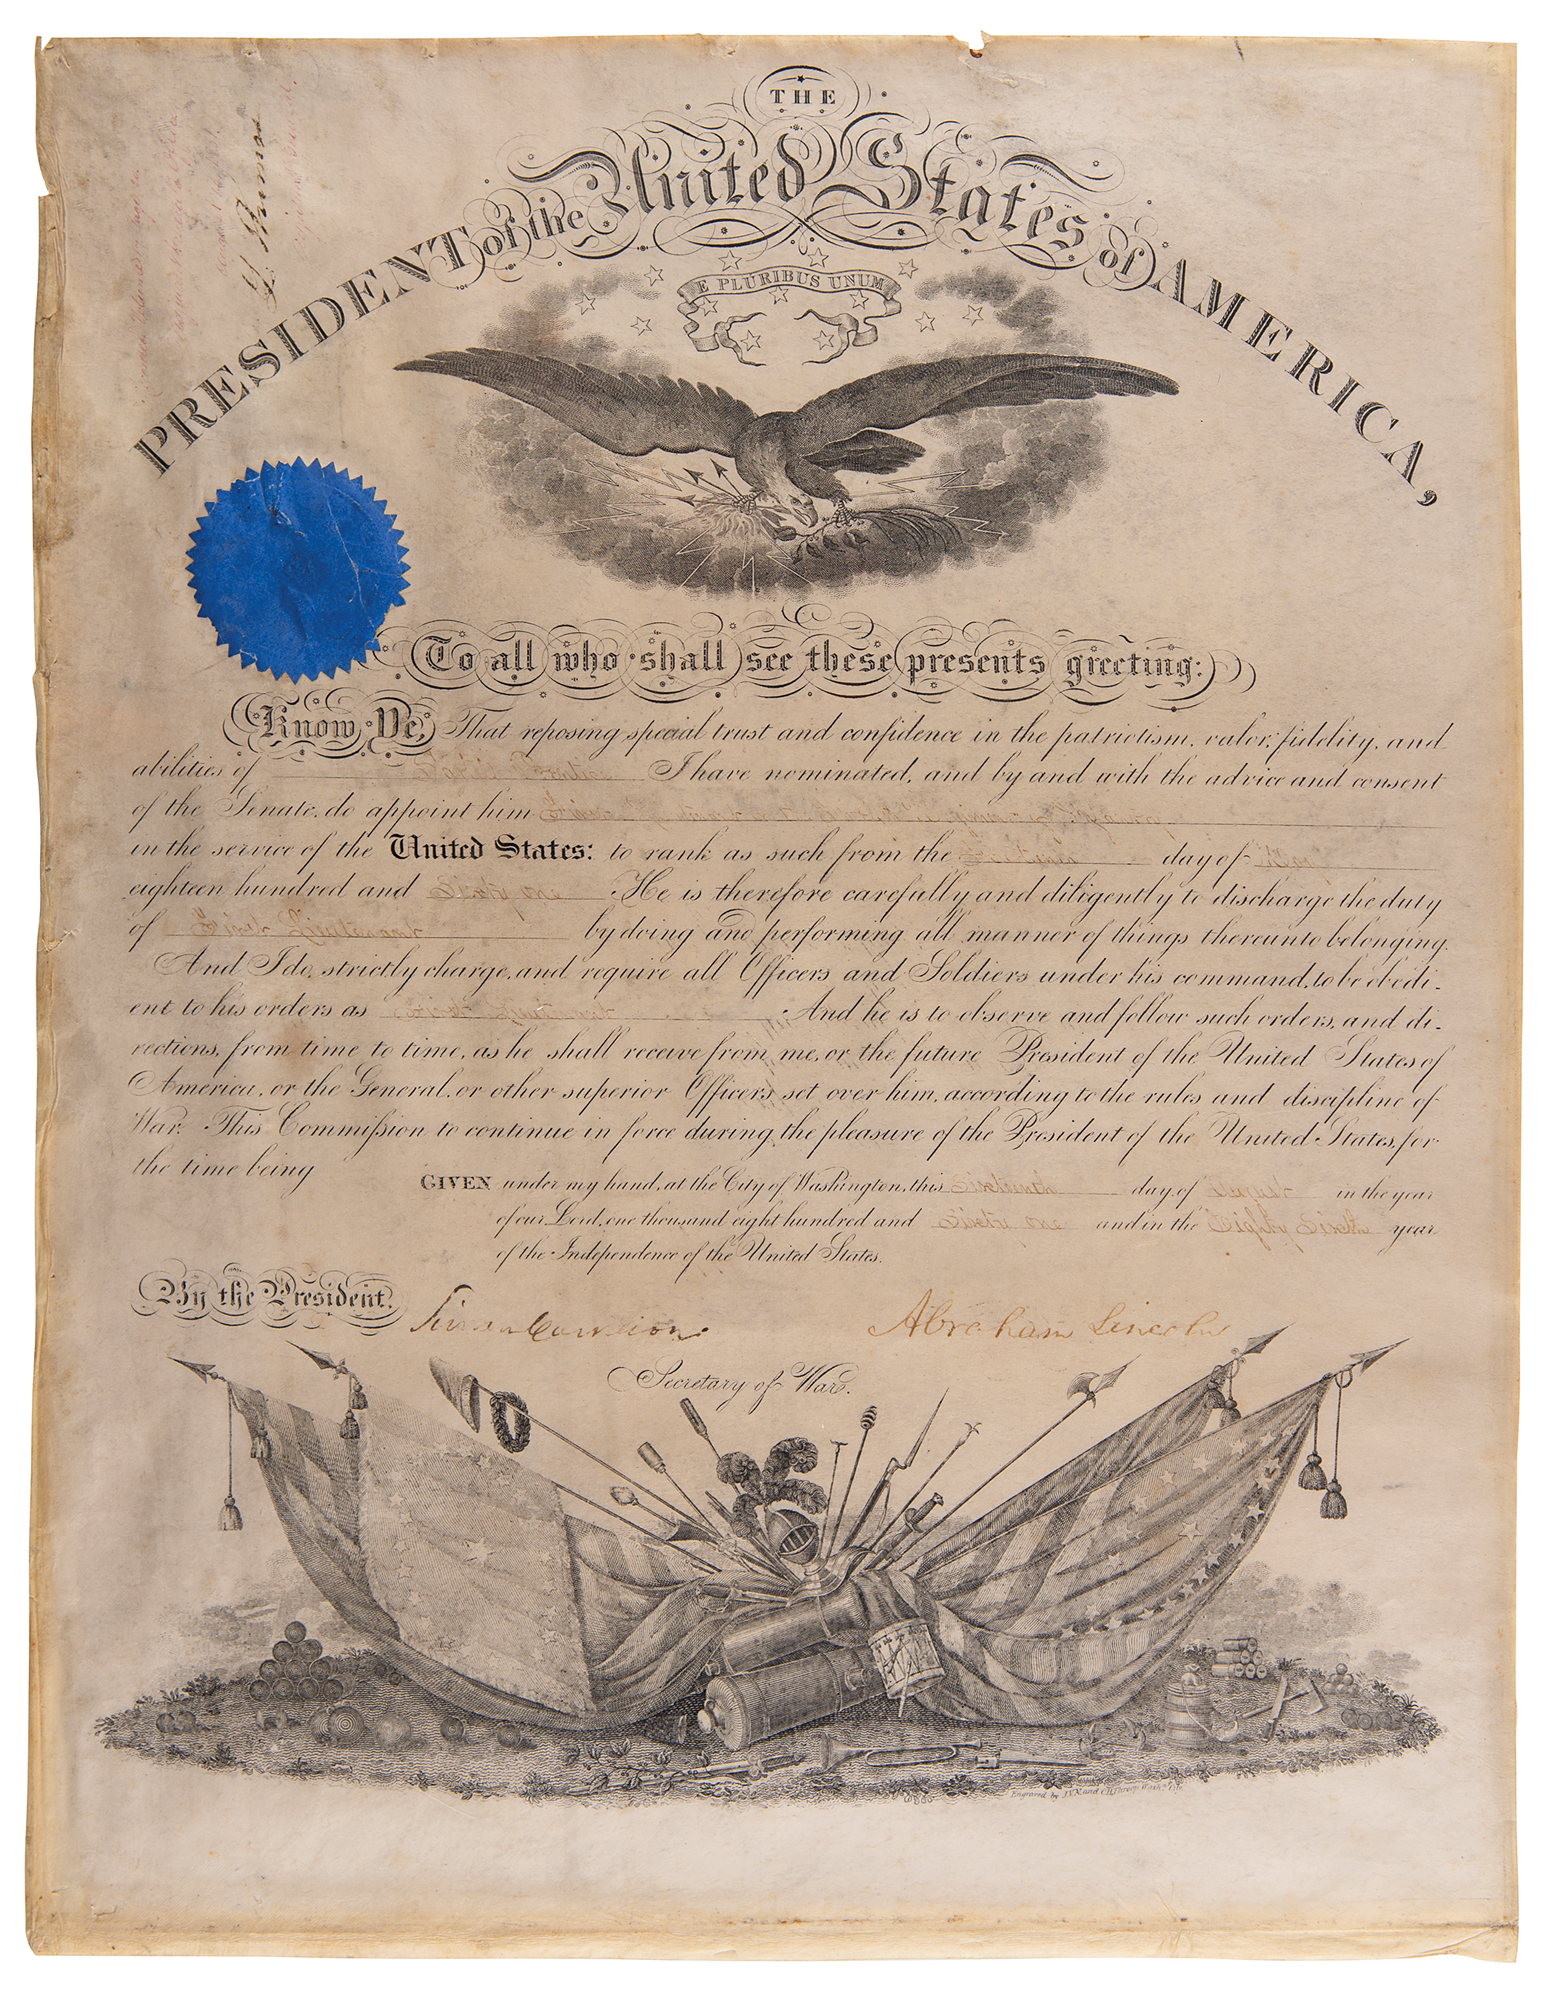 THE
PRESIDENT of the United States of AMERICA,
E PLURIBUS UNUM
To all who shall see these presents greeting:
Know Ye, That reposing special trust and confidence in the patriotism, valor, fidelity, and
abilities of I have nominated, and by and with the advice and consent
of the Senate, do appoint him First
in the service of the United States: to rank as such from the day of May
eighteen hundred and Sixty one He is therefore carefully and diligently to discharge the duty
of First Lieutenant by doing and performing all manner of things thereunto belonging.
And I do, strictly charge, and require all Officers and Soldiers under his command, to be obedi-
ent to his orders as First Lieutenant And he is to observe and follow such orders, and di-
rections, from time to time, as he shall receive from me, or the future President of the United States of
America, or the General, or other superior Officers set over him, according to the rules and discipline of
War. This Commission to continue in force during the pleasure of the President of the United States, for
the time being
GIVEN under my hand, at the City of Washington, this Sixteenth day of August in the year
of our Lord, one thousand eight hundred and Sixty one and in the Eighty Sixth year
of the Independence of the United States.
By the President.
Simon Cameron Abraham Lincoln
Secretary of War.
Engraved by J.V.N. and O.H. Throop Washn. City